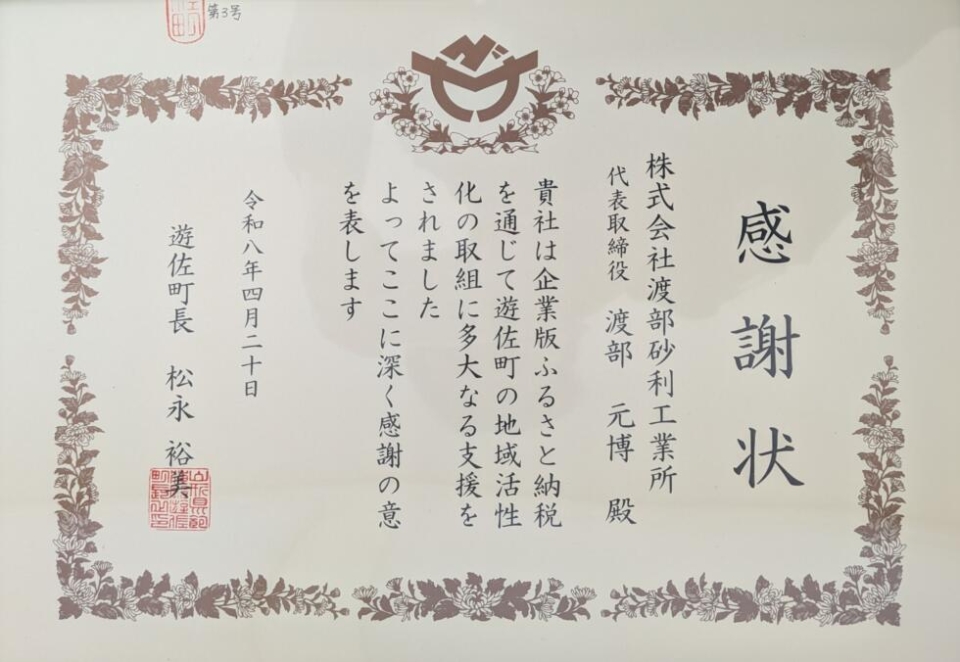 第3号
感謝状
株式会社渡部砂利工業所
代表取締役 渡部 元博 殿
貴社は企業版ふるさと納税
を通じて遊佐町の地域活性
化の取組に多大なる支援を
されました
よってここに深く感謝の意
を表します
令和八年四月二十日
遊佐町長 松永 裕美